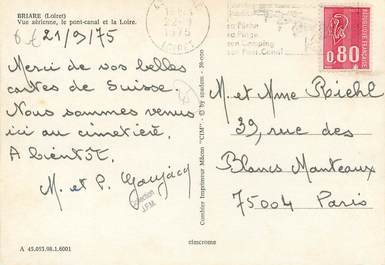 BRIARE (Loiret)
Vue aérienne, le pont-canal et la Loire.
21/9/75
Merci de vos belles
cartes de Suisse.
Nous sommes venus
ici au cimetière.
A bientôt.
M. et P. Gaujacq
Collection
J.F.M.
A 45.053.98.1.6001
Combier Imprimeur Mâcon "CIM"
cimcrome
1975
LOIRET
sa Pêche
sa Plage
son Camping
son Pont-Canal
0,80
M. et Mme Riehl
39, rue des
Blancs Manteaux
75004 Paris